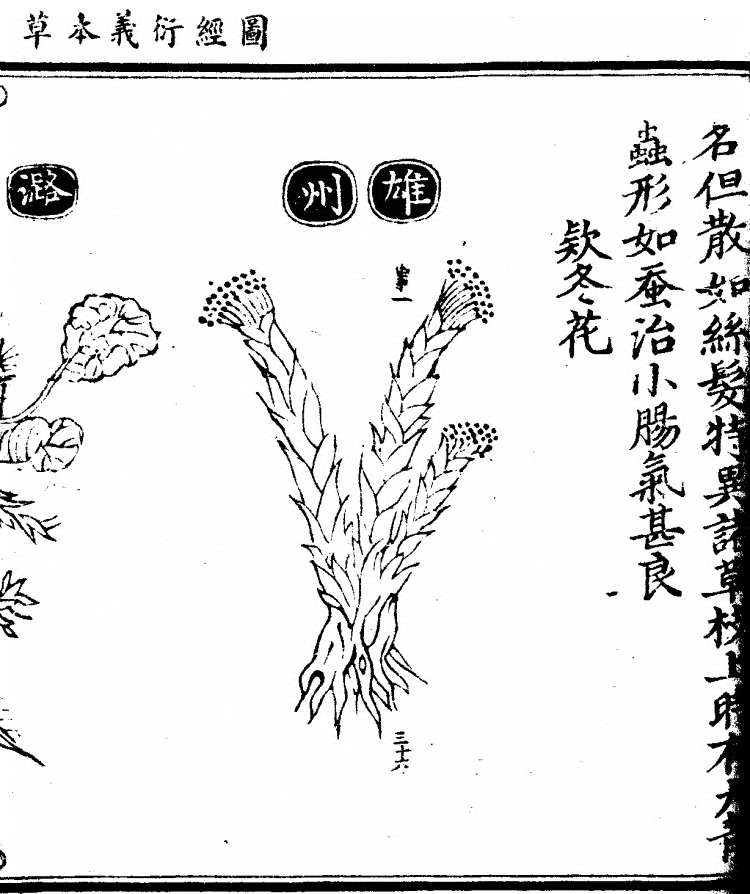 圖經衍義本草
名但散如絲髮特異諸草枝上時有大青
蟲形如蚕治小腸氣甚良
欵冬花
雄州
三十六
潞